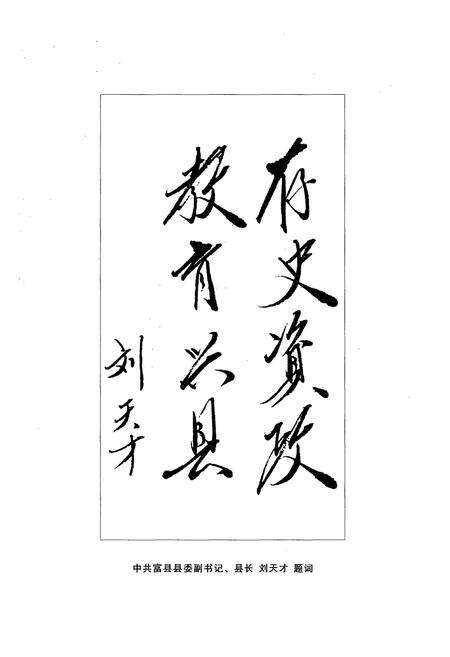 存史资政
教育兴县
刘天才
中共富县县委副书记、县长 刘天才 题词